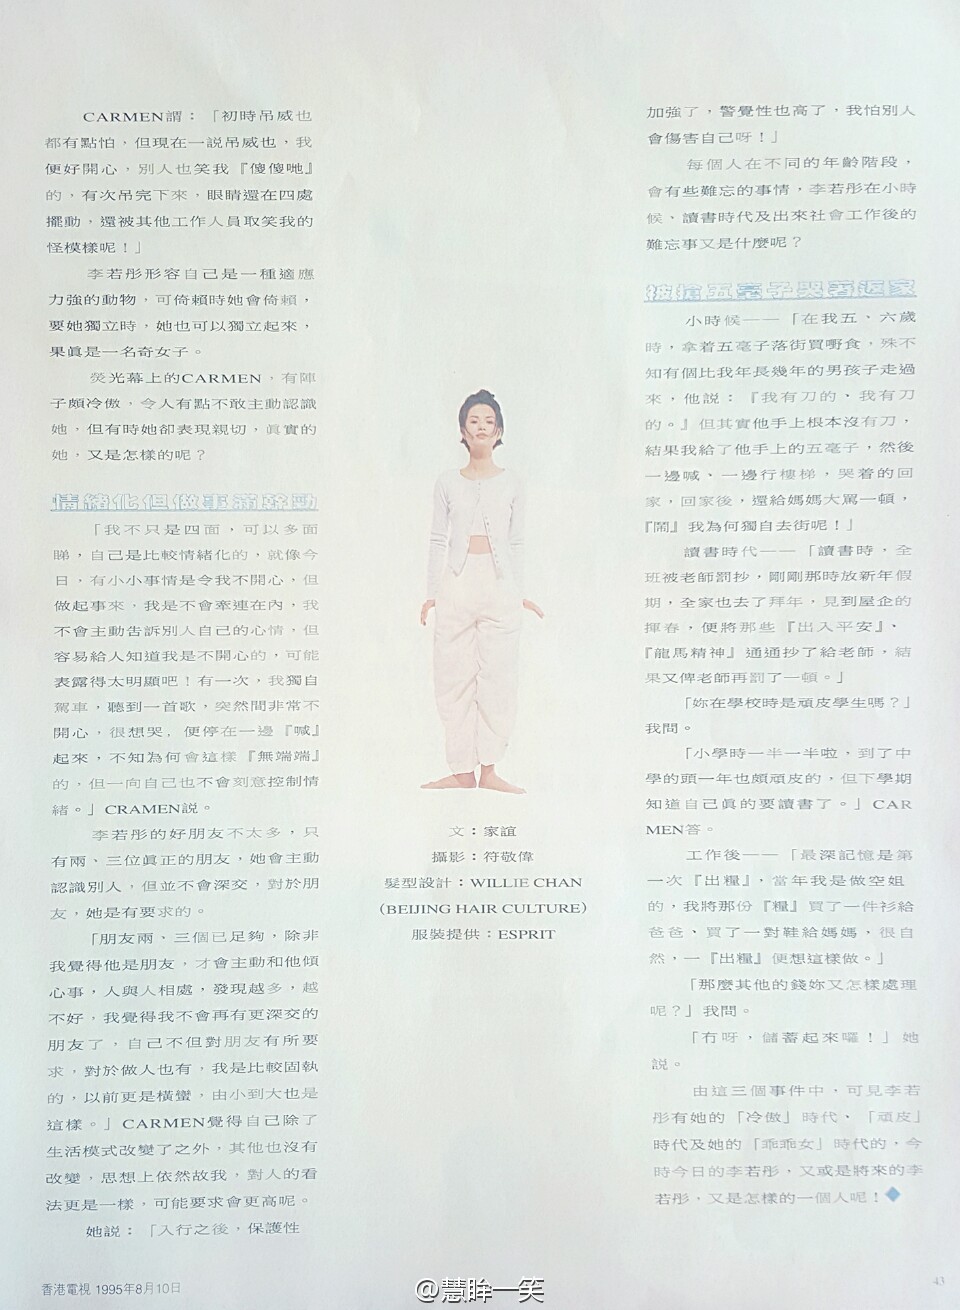 CARMEN謂：「初時吊威也
都有點怕，但現在一説吊威也，我
便好開心，別人也笑我『傻傻哋』
的，有次吊完下來，眼睛還在四處
擺動，還被其他工作人員取笑我的
怪模樣呢！」
李若彤形容自己是一種適應
力強的動物，可倚賴時她會倚賴，
要她獨立時，她也可以獨立起來，
果眞是一名奇女子。
熒光幕上的CARMEN，有陣
子頗冷傲，令人有點不敢主動認識
她，但有時她卻表現親切，眞實的
她，又是怎樣的呢？
情緒化但做事滿幹勁
「我不只是四面，可以多面
睇，自己是比較情緒化的，就像今
日，有小小事情是令我不開心，但
做起事來，我是不會牽連在內，我
不會主動告訴別人自己的心情，但
容易給人知道我是不開心的，可能
表露得太明顯吧！有一次，我獨自
駕車，聽到一首歌，突然間非常不
開心，很想哭，便停在一邊『喊』
起來，不知為何會這樣『無端端』
的，但一向自己也不會刻意控制情
緒。」CRAMEN説。
李若彤的好朋友不太多，只
有兩、三位眞正的朋友，她會主動
認識別人，但並不會深交，對於朋
友，她是有要求的。
「朋友兩、三個已足夠，除非
我覺得他是朋友，才會主動和他傾
心事，人與人相處，發現越多，越
不好，我覺得我不會再有更深交的
朋友了，自己不但對朋友有所要
求，對於做人也有，我是比較固執
的，以前更是橫蠻，由小到大也是
這樣。」CARMEN覺得自己除了
生活模式改變了之外，其他也沒有
改變，思想上依然故我，對人的看
法更是一樣，可能要求會更高呢。
她説：「入行之後，保護性
文：家誼
攝影：符敬偉
髮型設計：WILLIE CHAN
（BEIJING HAIR CULTURE）
服裝提供：ESPRIT
加強了，警覺性也高了，我怕別人
會傷害自己呀！」
每個人在不同的年齡階段，
會有些難忘的事情，李若彤在小時
候、讀書時代及出來社會工作後的
難忘事又是什麼呢？
被搶五毫子哭著返家
小時候——「在我五、六歲
時，拿着五毫子落街買嘢食，殊不
知有個比我年長幾年的男孩子走過
來，他説：『我有刀的、我有刀
的。』但其實他手上根本沒有刀，
結果我給了他手上的五毫子，然後
一邊喊、一邊行樓梯，哭着的回
家，回家後，還給媽媽大罵一頓，
『鬧』我為何獨自去街呢！」
讀書時代——「讀書時，全
班被老師罰抄，剛剛那時放新年假
期，全家也去了拜年，見到屋企的
揮春，便將那些『出入平安』、
『龍馬精神』通通抄了給老師，結
果又俾老師再罰了一頓。」
「妳在學校時是頑皮學生嗎？」
我問。
「小學時一半一半啦，到了中
學的頭一年也頗頑皮的，但下學期
知道自己眞的要讀書了。」CAR
MEN答。
工作後——「最深記憶是第
一次『出糧』，當年我是做空姐
的，我將那份『糧』買了一件衫給
爸爸、買了一對鞋給媽媽，很自
然，一『出糧』便想這樣做。」
「那麼其他的錢妳又怎樣處理
呢？」我問。
「冇呀，儲蓄起來囉！」她
説。
由這三個事件中，可見李若
彤有她的「冷傲」時代、「頑皮」
時代及她的「乖乖女」時代的，今
時今日的李若彤，又或是將來的李
若彤，又是怎樣的一個人呢！
香港電視 1995年8月10日
@慧眸一笑
43